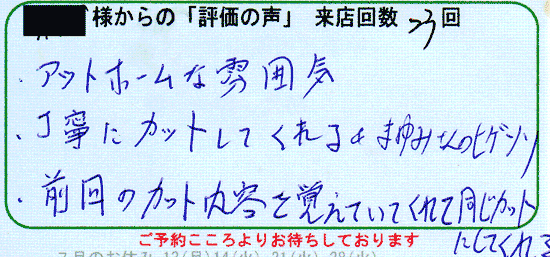 様からの「評価の声」 来店回数 23回
・アットホームな雰囲気
・丁寧にカットしてくれる & まゆみさんのヒゲソリ
・前回のカット内容を覚えていてくれて同じカット
にしてくれる
ご予約こころよりお待ちしております
7月のお休み 13(月)14(火) 21(火) 28(火)